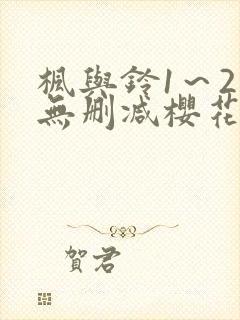 楓與鈴1~2
無刪减櫻花
賀君